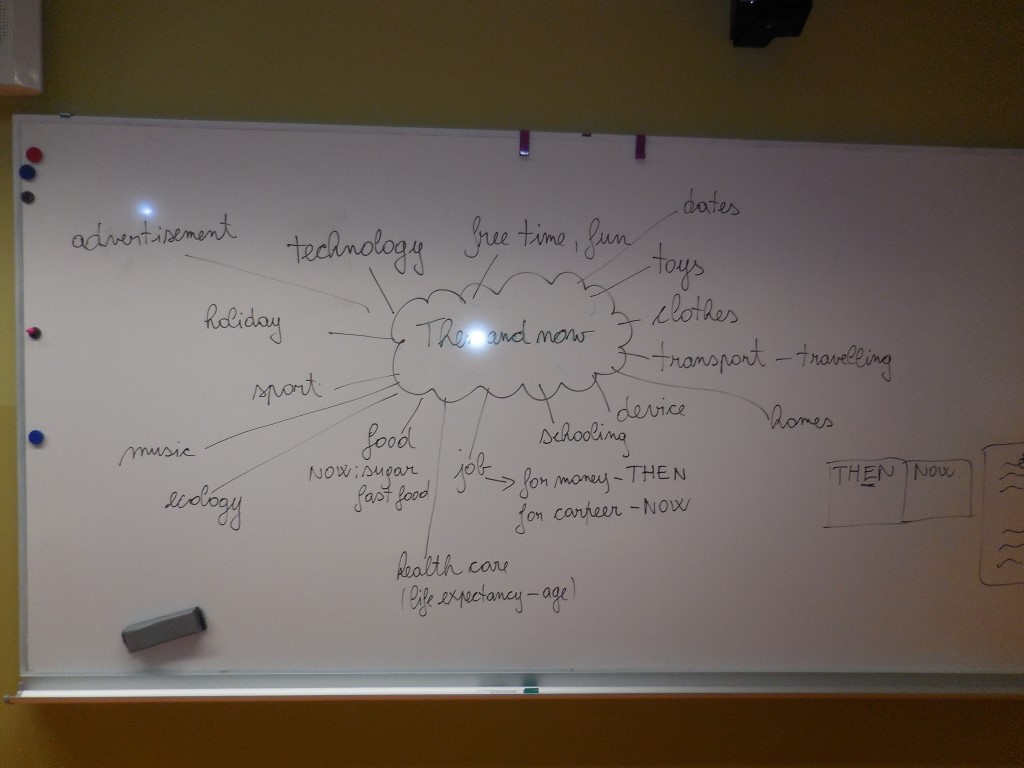 dates
advertisement
technology
free time, fun
toys
holiday
Then and now
clothes
transport – travelling
sport
device
homes
music
food
NOW: sugar
fast food
job
schooling
for money – THEN
for carreer – NOW
ecology
THEN
NOW
health care
(life expectancy – age)